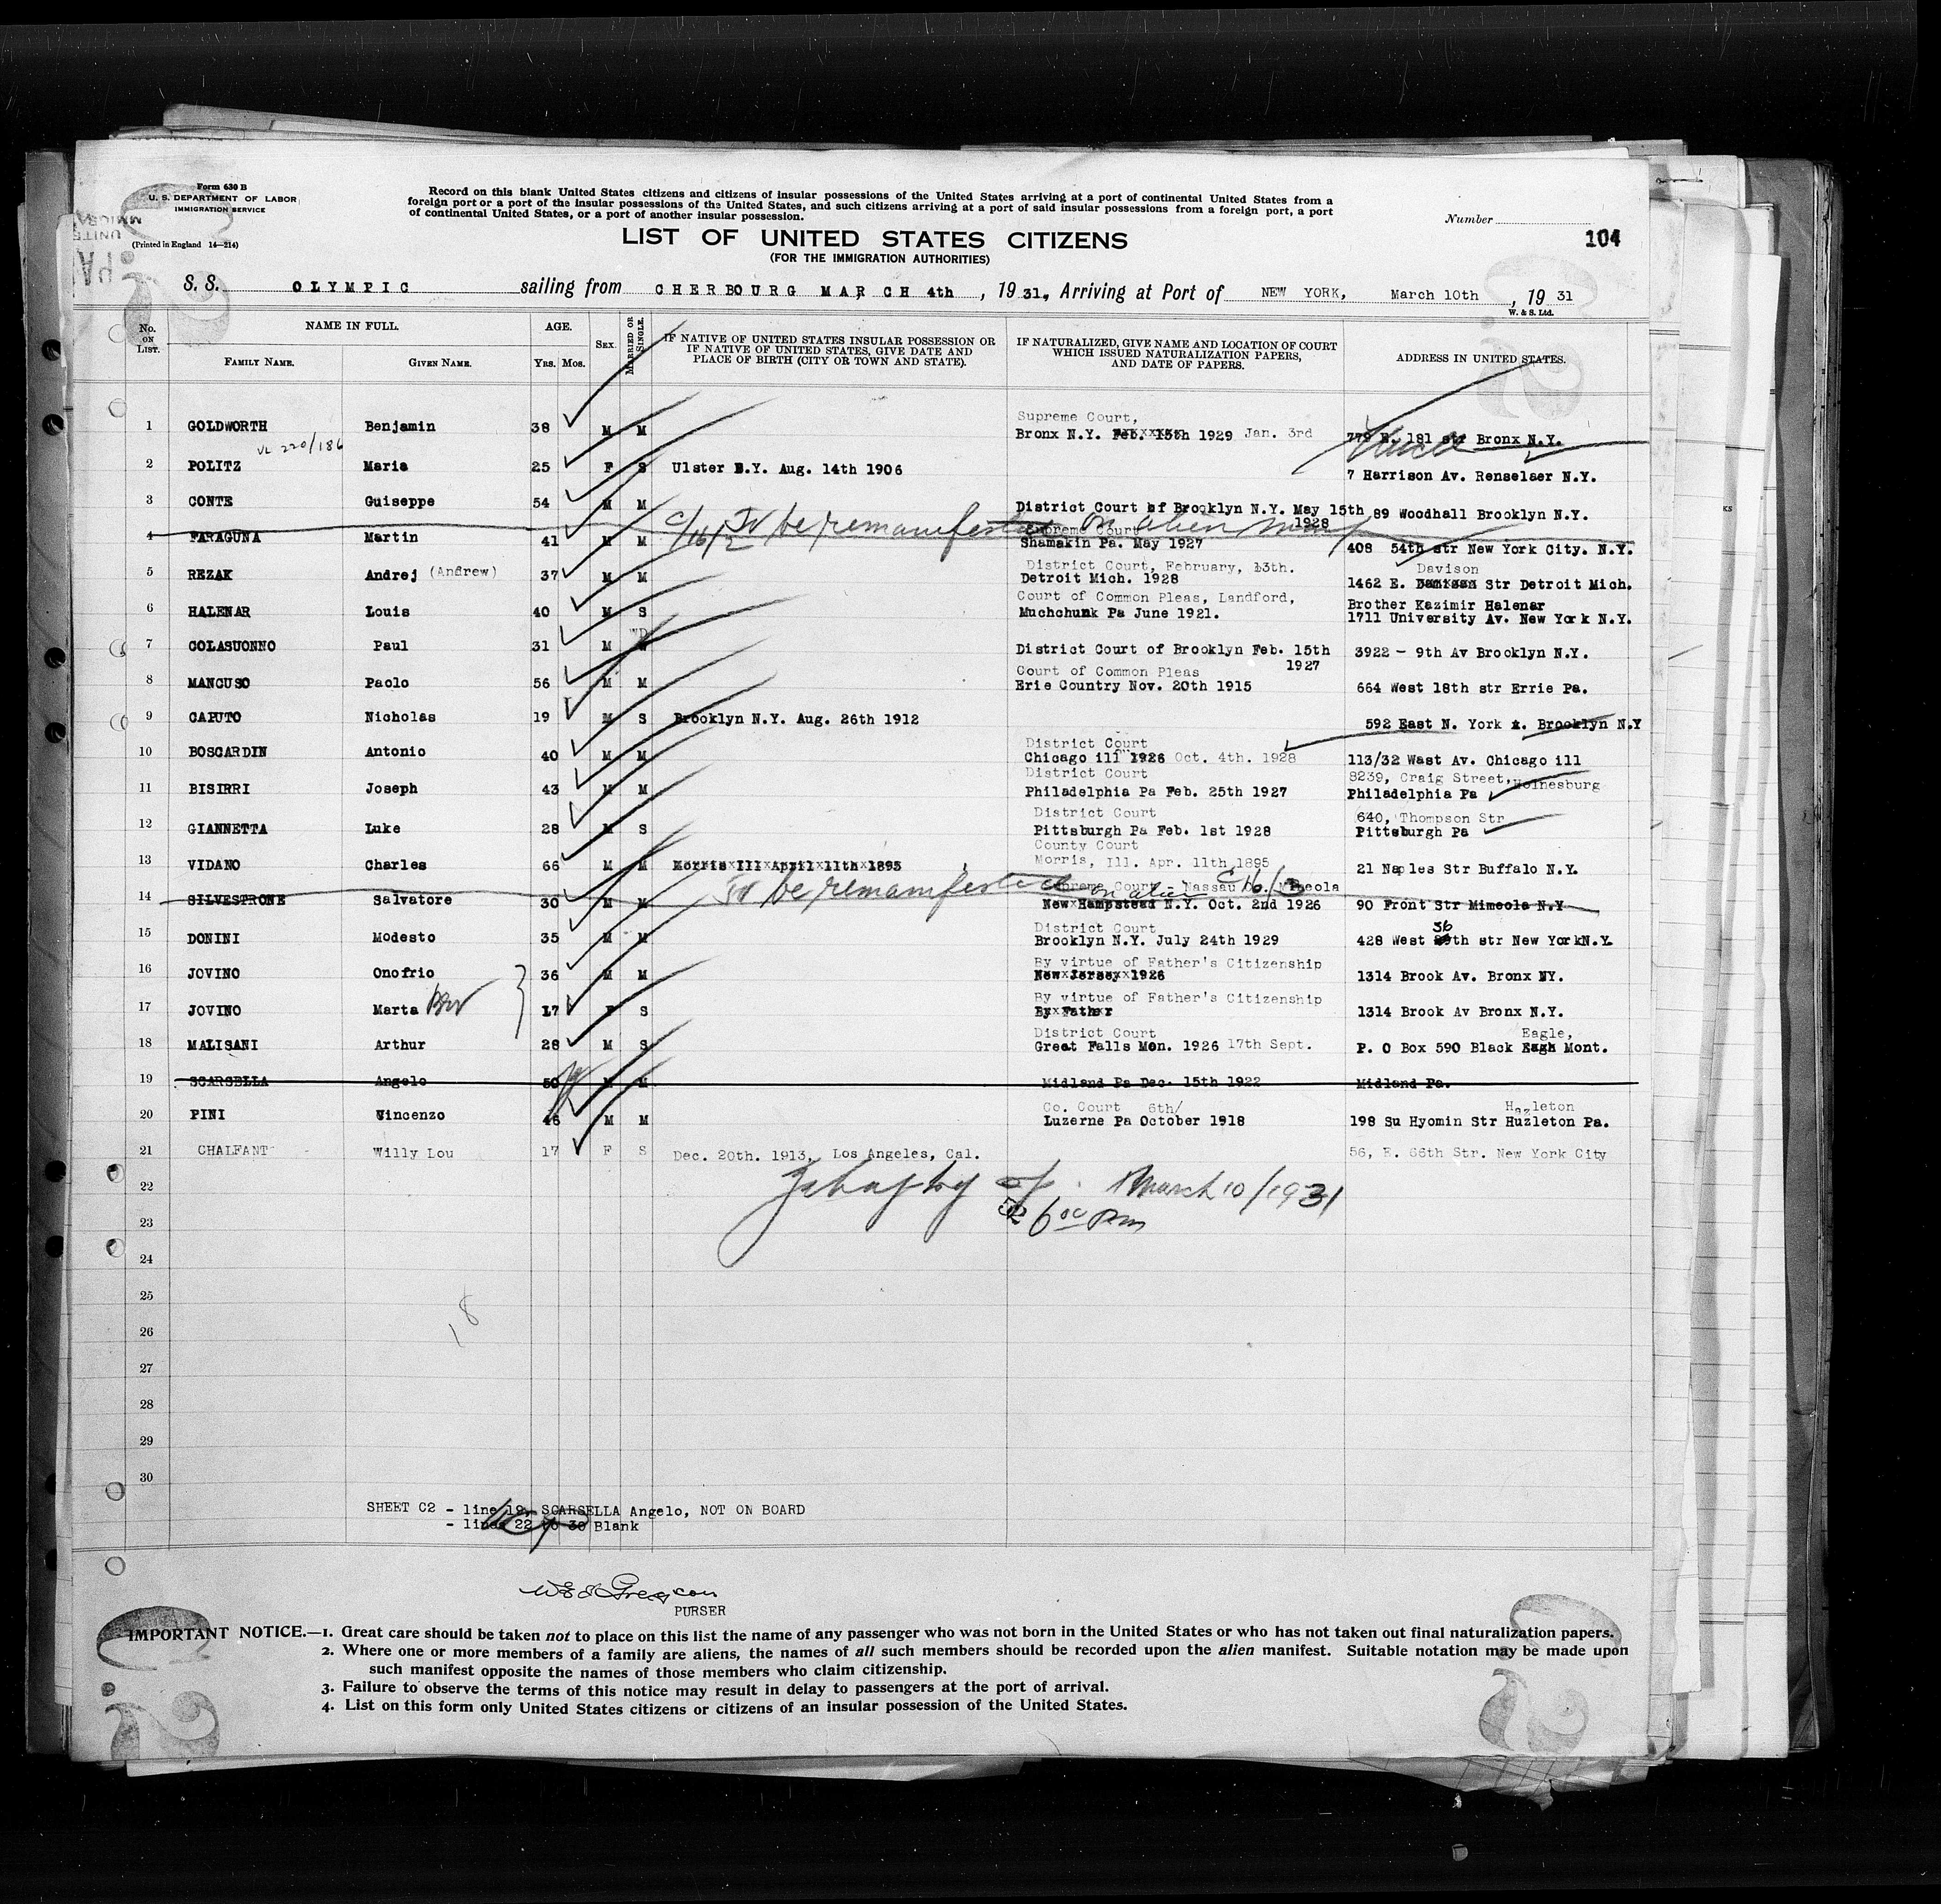 Form 630 B
U. S. DEPARTMENT OF LABOR
IMMIGRATION SERVICE
(Printed in England 14—214)
Record on this blank United States citizens and citizens of insular possessions of the United States arriving at a port of continental United States from a
foreign port or a port of the insular possessions of the United States, and such citizens arriving at a port of said insular possessions from a foreign port, a port
of continental United States, or a port of another insular possession.
Number
104
LIST OF UNITED STATES CITIZENS
(FOR THE IMMIGRATION AUTHORITIES)
S. S. OLYMPIC sailing from CHERBOURG MARCH 4th, 1931, Arriving at Port of NEW YORK, March 10th, 1931
W. & S. Ltd.
No. ON LIST. NAME IN FULL. AGE. SEX. MARRIED OR SINGLE. IF NATIVE OF UNITED STATES INSULAR POSSESSION OR IF NATIVE OF UNITED STATES, GIVE DATE AND PLACE OF BIRTH (CITY OR TOWN AND STATE). IF NATURALIZED, GIVE NAME AND LOCATION OF COURT WHICH ISSUED NATURALIZATION PAPERS, AND DATE OF PAPERS. ADDRESS IN UNITED STATES.
FAMILY NAME. GIVEN NAME. Yrs. Mos.
Supreme Court,
1 GOLDWORTH Benjamin 38 M M Bronx N.Y. Feb. 15th 1929 Jan. 3rd 779 E. 181 str Bronx N.Y.
VL 220/186
2 POLITZ Maria 25 F S Ulster N.Y. Aug. 14th 1906 7 Harrison Av. Renselaer N.Y.
3 CONTE Guiseppe 54 M M District Court of Brooklyn N.Y. May 15th 1928 89 Woodhall Brooklyn N.Y.
To be remanifested on alien
Supreme Court
4 FARAGUNA Martin 41 M M Shamakin Pa. May 1927 408 54th str New York City. N.Y.
District Court, February, 13th. Davison
5 REZAK Andrej (Andrew) 37 M M Detroit Mich. 1928 1462 E. Str Detroit Mich.
Court of Common Pleas, Landford, Brother Kazimir Halenar
6 HALENAR Louis 40 M S Muchchunk Pa June 1921. 1711 University Av. New York N.Y.
WD
7 COLASUONNO Paul 31 M District Court of Brooklyn Feb. 15th 1927 3922 - 9th Av Brooklyn N.Y.
Court of Common Pleas
8 MANCUSO Paolo 56 M M Erie Country Nov. 20th 1915 664 West 18th str Errie Pa.
9 CAPUTO Nicholas 19 M S Brooklyn N.Y. Aug. 26th 1912 592 East N. York Brooklyn N.Y
District Court
10 BOSCARDIN Antonio 40 M M Chicago ill 1926 Oct. 4th. 1928 113/32 Wast Av. Chicago ill
District Court 8239, Craig Street, Holnesburg
11 BISIRRI Joseph 43 M M Philadelphia Pa Feb. 25th 1927 Philadelphia Pa
District Court 640, Thompson Str
12 GIANNETTA Luke 28 M S Pittsburgh Pa Feb. 1st 1928 Pittsburgh Pa
County Court
13 VIDANO Charles 66 M M Morris Ill April 11th 1895 Morris, Ill. Apr. 11th 1895 21 Naples Str Buffalo N.Y.
To be remanifested on alien
Supreme Court - Nassau Co. Mineola
14 SILVESTRONE Salvatore 30 M M New Hampstead N.Y. Oct. 2nd 1926 90 Front Str Mimeola N.Y
District Court 36
15 DONINI Modesto 35 M M Brooklyn N.Y. July 24th 1929 428 West th str New York N.Y.
By virtue of Father's Citizenship
16 JOVINO Onofrio 36 M M New Jersey 1926 1314 Brook Av. Bronx NY.
By virtue of Father's Citizenship
17 JOVINO Marta 17 F S By Father 1314 Brook Av Bronx N.Y.
District Court Eagle,
18 MALISANI Arthur 28 M S Great Falls Mon. 1926 17th Sept. P. O Box 590 Black Mont.
19 SCARSELLA Angelo 50 M M Midland Pa Dec. 15th 1922 Midland Pa.
Co. Court 6th/ Hazleton
20 PINI Vincenzo 46 M M Luzerne Pa October 1918 198 Su Hyomin Str Huzleton Pa.
21 CHALFANT Willy Lou 17 F S Dec. 20th. 1913, Los Angeles, Cal. 56, E. 66th Str. New York City
22 March 10/1931
23 6 00 Pm
24
25
26
27
28
29
30
18
SHEET C2 - line 19, SCARSELLA Angelo, NOT ON BOARD
- lines 22 to 30 Blank
PURSER
IMPORTANT NOTICE.—1. Great care should be taken not to place on this list the name of any passenger who was not born in the United States or who has not taken out final naturalization papers.
2. Where one or more members of a family are aliens, the names of all such members should be recorded upon the alien manifest. Suitable notation may be made upon
such manifest opposite the names of those members who claim citizenship.
3. Failure to observe the terms of this notice may result in delay to passengers at the port of arrival.
4. List on this form only United States citizens or citizens of an insular possession of the United States.